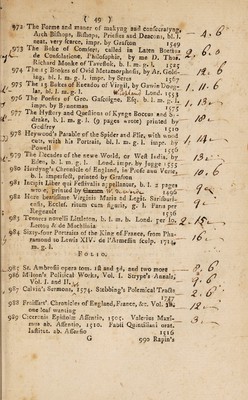 ( 49 )
972 The Forme and maner of makyng and consecratyng,
Arch Bishops, Bishops, Priestes and Deacons, bl. l.
neat, very scarce, impr. by Grafton 1549
4 . 6
973 The Boke of Comfort, called in Laten Boetius
de Consolatione. Philosophie, by me D. Thos.
Richard Monke of Tavestok, b. l. m. g. l. 1525
2 . 6 . 0
974 The 15 Bokes of Ovid Metamorphosis, by Ar. Gold-
ing, bl. l. m. g. l. impr. by Seres 1567
12 . 6
975 The 13 Bakes of Eneados of Virgil, by Gawin Doug-
las, bl. m. g. l. Lond. 1553
1 . 11 . 6
976 The Poesies of Geo. Gascoigne, Esq. b. l. m. g. l.
impr. by Bynneman 1575
1 . 13
977 The Hystory and Questions of Kynge Boccus and
drake, bl. l. m. g. l. (9 pages wrote) printed by
Godfrey 1510
978 Heywood's Parable of the Spider and Flie, with wood
cuts, with his Portrait, bl. l. m. g. l. impr. by
Powell 1556
1 . 14
979 The Decades of the newe World, or West India, by
Eden, b l. m g. l. Lond. impr. by Jugge 1555
980 Hardyng's Chronicle of England, in Prose and Verse,
b. l. imperfect, printed by Grafton
981 Incipit Liber qui Festivalis appellatur, b. l. 2 pages
wrote, printed by
982 Hore beatissime Virginis Marie ad Legit. Sirisburi-
ensis, Eccles. ritum cum figuris, g. l. Paris per
Regnault 1536
983 Tewrnes novelli Littleton, b. l. m. b. Lond. per Jo.
Lettou & de Machlinia
2 . 15
984 Sixty-four Portraits of the King of France, from Pha-
ramond to Lewis XIV. de l'Armessin sculp. 1714,
m. g. l.
16
FOLIO.
985 St. Ambrosii opera tom. 1st and 3d, and two more
2 . 6
986 Milton's Political Works, Vol. I. Strype's Annals,
Vol. I. and II.
9 . 6
987 Calvin's Sermons, 1574. Stebbing's Polemical Tracts
1727
2 . 6
988 Froissart' Chronicles of England, France, &c. Vol. 1st.
one leaf wanting
12
989 Ciceronis Epistolæ Assentio, 1505. Valerius Maxi-
mus ab. Assentio, 1510. Fabii Quintiliani orat.
Institut. ab Assentio 1516
3
G
990 Rapin's